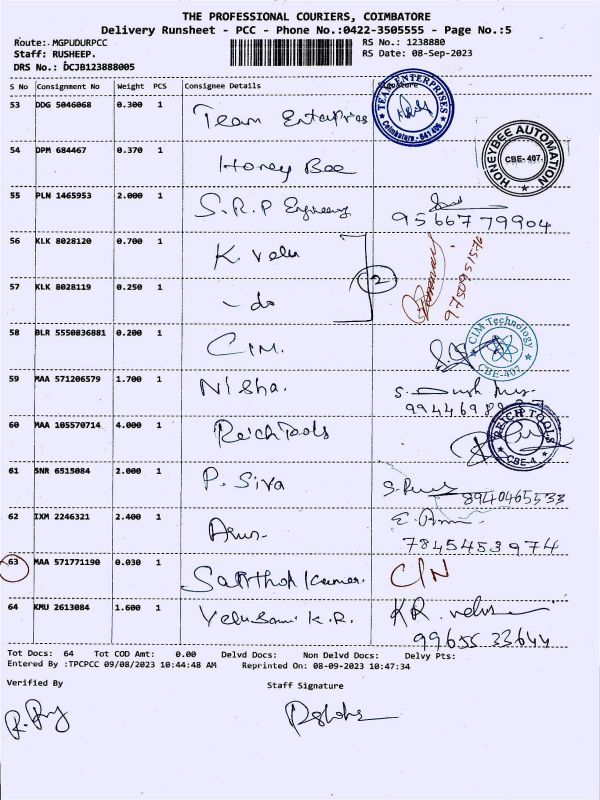 THE PROFESSIONAL COURIERS, COIMBATORE
Delivery Runsheet - PCC - Phone No.:0422-3505555 - Page No.:5
Route: MGPUDURPCC RS No.: 1238880
Staff: RUSHEEP. RS Date: 08-Sep-2023
DRS No.: DCJB123888005
S No Consignment No Weight PCS Consignee Details Signature
53 DDG 5046068 0.300 1 Team Enterprises TEAM ENTERPRISES Coimbatore - 641 406
54 DPM 684467 0.370 1 Honey Bee HONEYBEE AUTOMATION CBE-407.
55 PLN 1465953 2.000 1 S.R.P Engineering 9566779904
56 KLK 8028120 0.700 1 K. Velu
57 KLK 8028119 0.250 1 - do 2 9750951576
58 BLR 5550836881 0.200 1 CIM. CIM Technology CBE-407
59 MAA 571206579 1.700 1 Nisha.
60 MAA 105570714 4.000 1 Reich Tools REICH TOOLS CBE-4
61 SNR 6515084 2.000 1 P. Siva 8940465533
62 IXM 2246321 2.400 1 Arun. 7845453974
63 MAA 571771190 0.030 1 Santhosh Kumar. C/N
64 KMU 2613084 1.600 1 Velusami K.R. KR. velu
9965533644
Tot Docs: 64 Tot COD Amt: 0.00 Delvd Docs: Non Delvd Docs: Delvy Pts:
Entered By :TPCPCC 09/08/2023 10:44:48 AM Reprinted On: 08-09-2023 10:47:34
Verified By Staff Signature